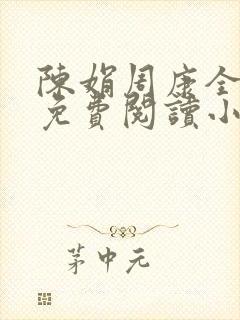 陳娟周康全
免費閱讀小
茅中元